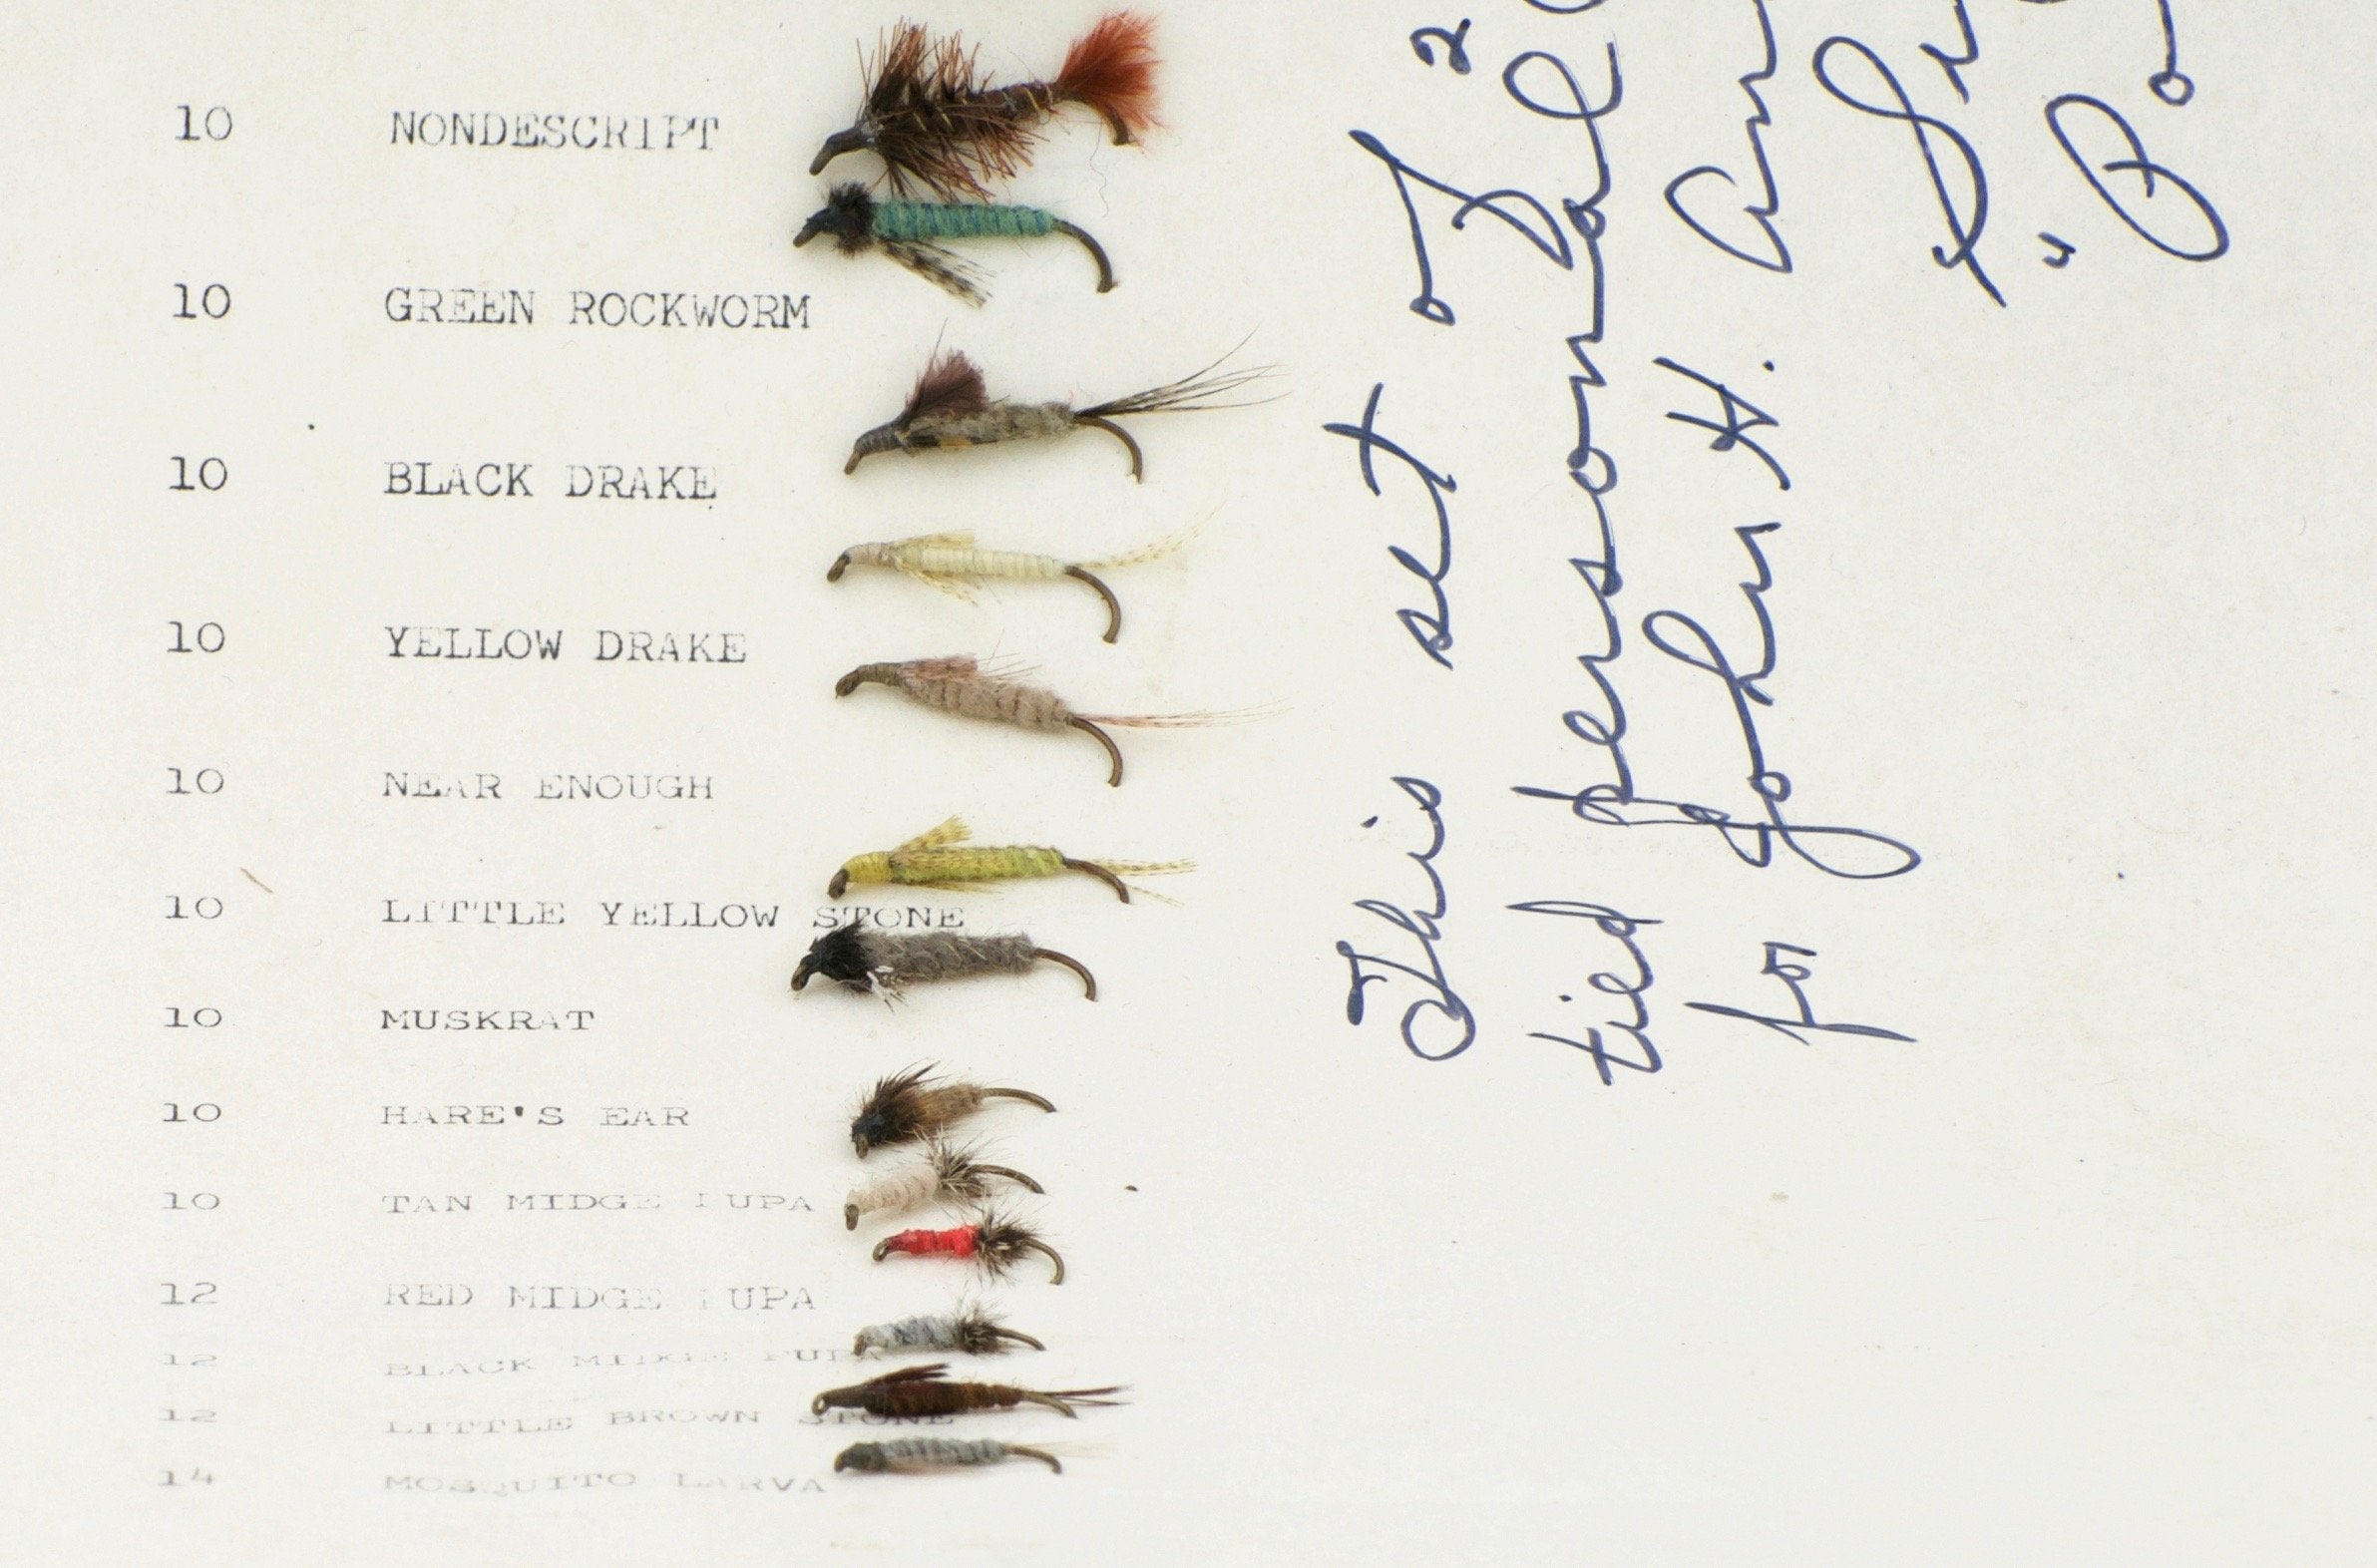 10 NONDESCRIPT
10 GREEN ROCKWORM
10 BLACK DRAKE
10 YELLOW DRAKE
10 NEAR ENOUGH
10 LITTLE YELLOW STONE
10 MUSKRAT
10 HARE'S EAR
10 TAN MIDGE PUPA
12 RED MIDGE PUPA
12 BLACK MIDGE PUPA
12 LITTLE BROWN STONE
14 MOSQUITO LARVA
This set of 2
tied personal
for John H.